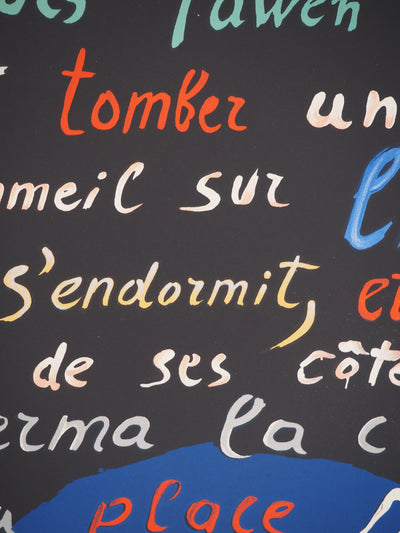 tomber un
mmeil sur l'
s'endormit, e
de ses côte
erma la c
place